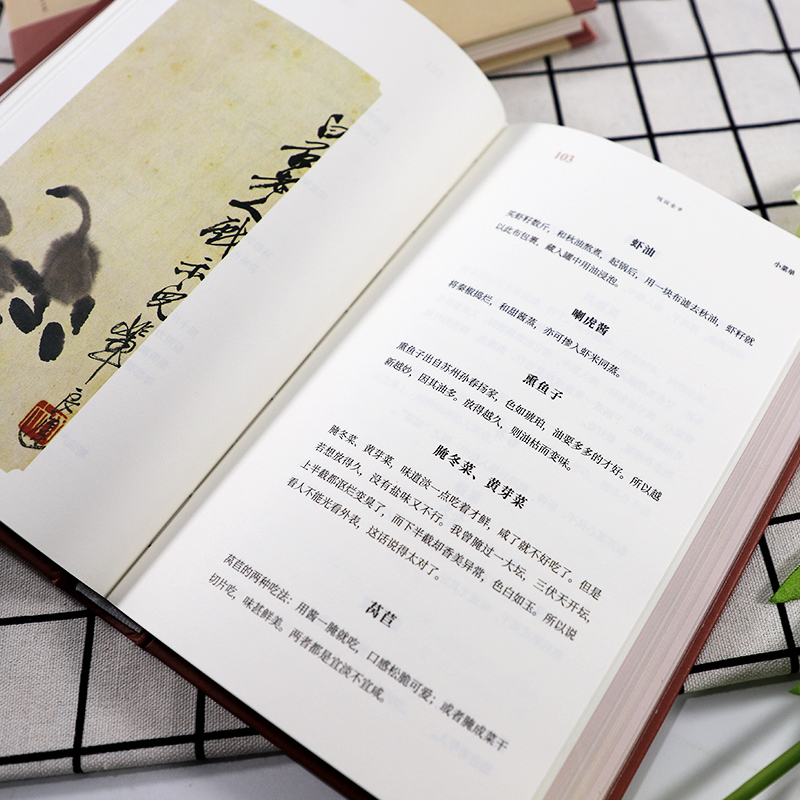 白石老人戏示儿辈
103
随园食单
小菜单
虾油
买虾籽数斤，和秋油熬煮，起锅后，用一块布滤去秋油，虾籽就
以此布包裹，藏入罐中用油浸泡。
喇虎酱
将秦椒捣烂，和甜酱蒸，亦可掺入虾米同蒸。
熏鱼子
熏鱼子出自苏州孙春杨家，色如琥珀，油要多多的才好。所以越
新越妙，因其油多。放得越久，则油枯而变味。
腌冬菜、黄芽菜
腌冬菜、黄芽菜，味道淡一点吃着才鲜，咸了就不好吃了。但是
若想放得久，没有盐味又不行。我曾腌过一大坛，三伏天开坛，
上半截都沤烂变臭了，而下半截却香美异常，色白如玉。所以说
看人不能光看外表，这话说得太对了。
莴苣
莴苣的两种吃法：用酱一腌就吃，口感松脆可爱；或者腌成菜干
切片吃，味甚鲜美。两者都是宜淡不宜咸。